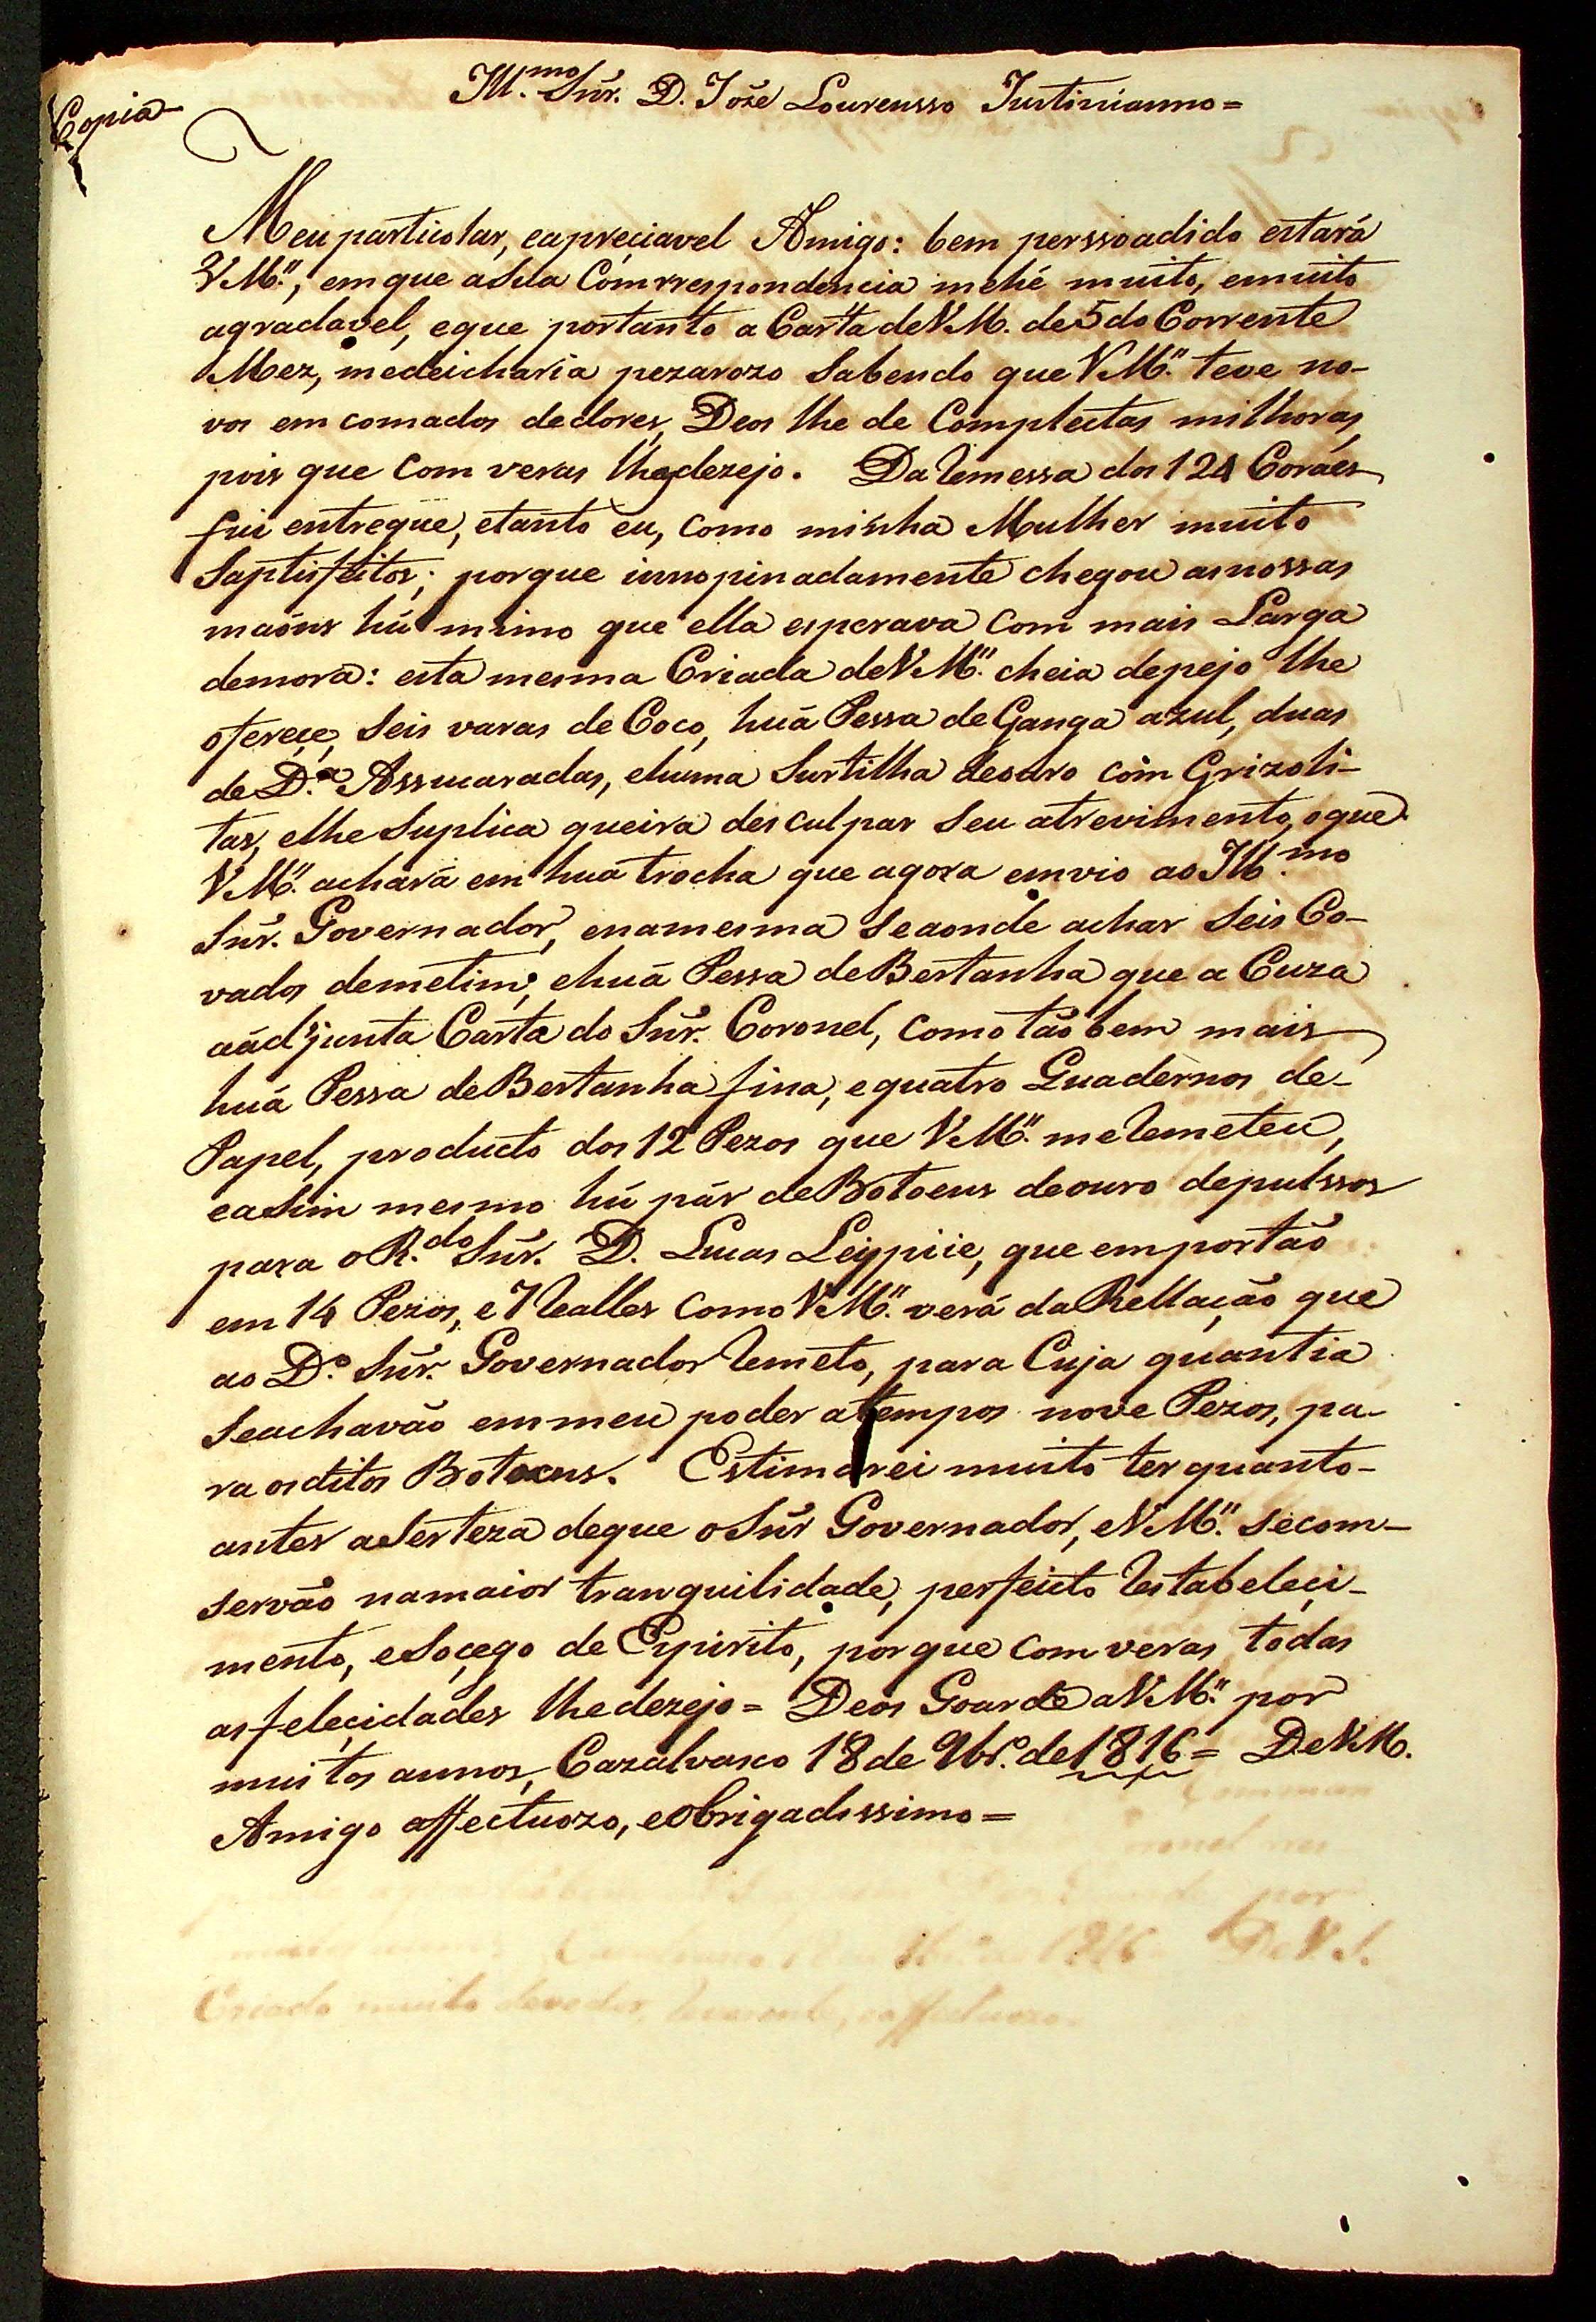 Copia
Ill.mo Snr. D. Joze Lourensso Justinianno=
Meu particular, eapreçiavel Amigo: bem perssoadido estará
VM.", em que asua Comrrespondencia mehé muito, emuito
agradavel, eque portanto a Carta deVM." de 5 do Corrente
Mez, medeicharia pezarozo Sabendo que VM." teve no-
vos em comados dedores, Deos lhe de Complectas milhoras,
pois que com veras lhe dezejo. Da Remessa dos 124 Coráes
fui entregue, etanto eu, como minha Mulher muito
Saptisfeitos; porque innopinadamente chegou as nossas
maóns hú mimo que ella esperava com mais Larga
demora: esta mesma Criada deVM." cheia depejo lhe
ofereçe, Seis varas de Coco, huá Pessa de Ganga azul, duas
de D.ª Assucaradas, ehuma Surtilha deouro com Grizoli-
tas, elhe Suplica queira desculpar Seu atrevimento, oque
VM." achará em huá trocha que agora emvio ao Ill.mo
Snr. Governador, enamesma seaonde achar Seis Co-
vados demetim, ehuá Pessa deBertanha que a Cuza
aádjunta Carta do Snr. Coronel, como tãobem mais
huá Pessa deBertanha fina, equatro Quadernos de-
Papel, producto dos 12 Pezos que VM." me Remeteu,
easim mesmo hú pár deBotoens deouro depulssos
para oR.do Snr. D. Lucas Leypiie, que emportão
em 14 Pezos, e 7 Realles como VM." verá da Rellação que
ao D.º Snr. Governador Remeto, para Cuja quantia
Seachavão emmeu poder atempos nove Pezos, pa-
ra osditos Botoens. Estimarei muito ter quanto-
antes aSerteza deque oSnr Governador, eVM." secom-
servão namaior tranquilidade, perfeito Restabeleçi-
mento, eSoçego de Espirito, porque com veras todas
asfeleçidades lhedezejo= Deos Goarde aVM." por
muitos annos, Cazalvasco 18 de 9br.º de 1816= DeVM.
Amigo affectuozo, eobrigadissimo=